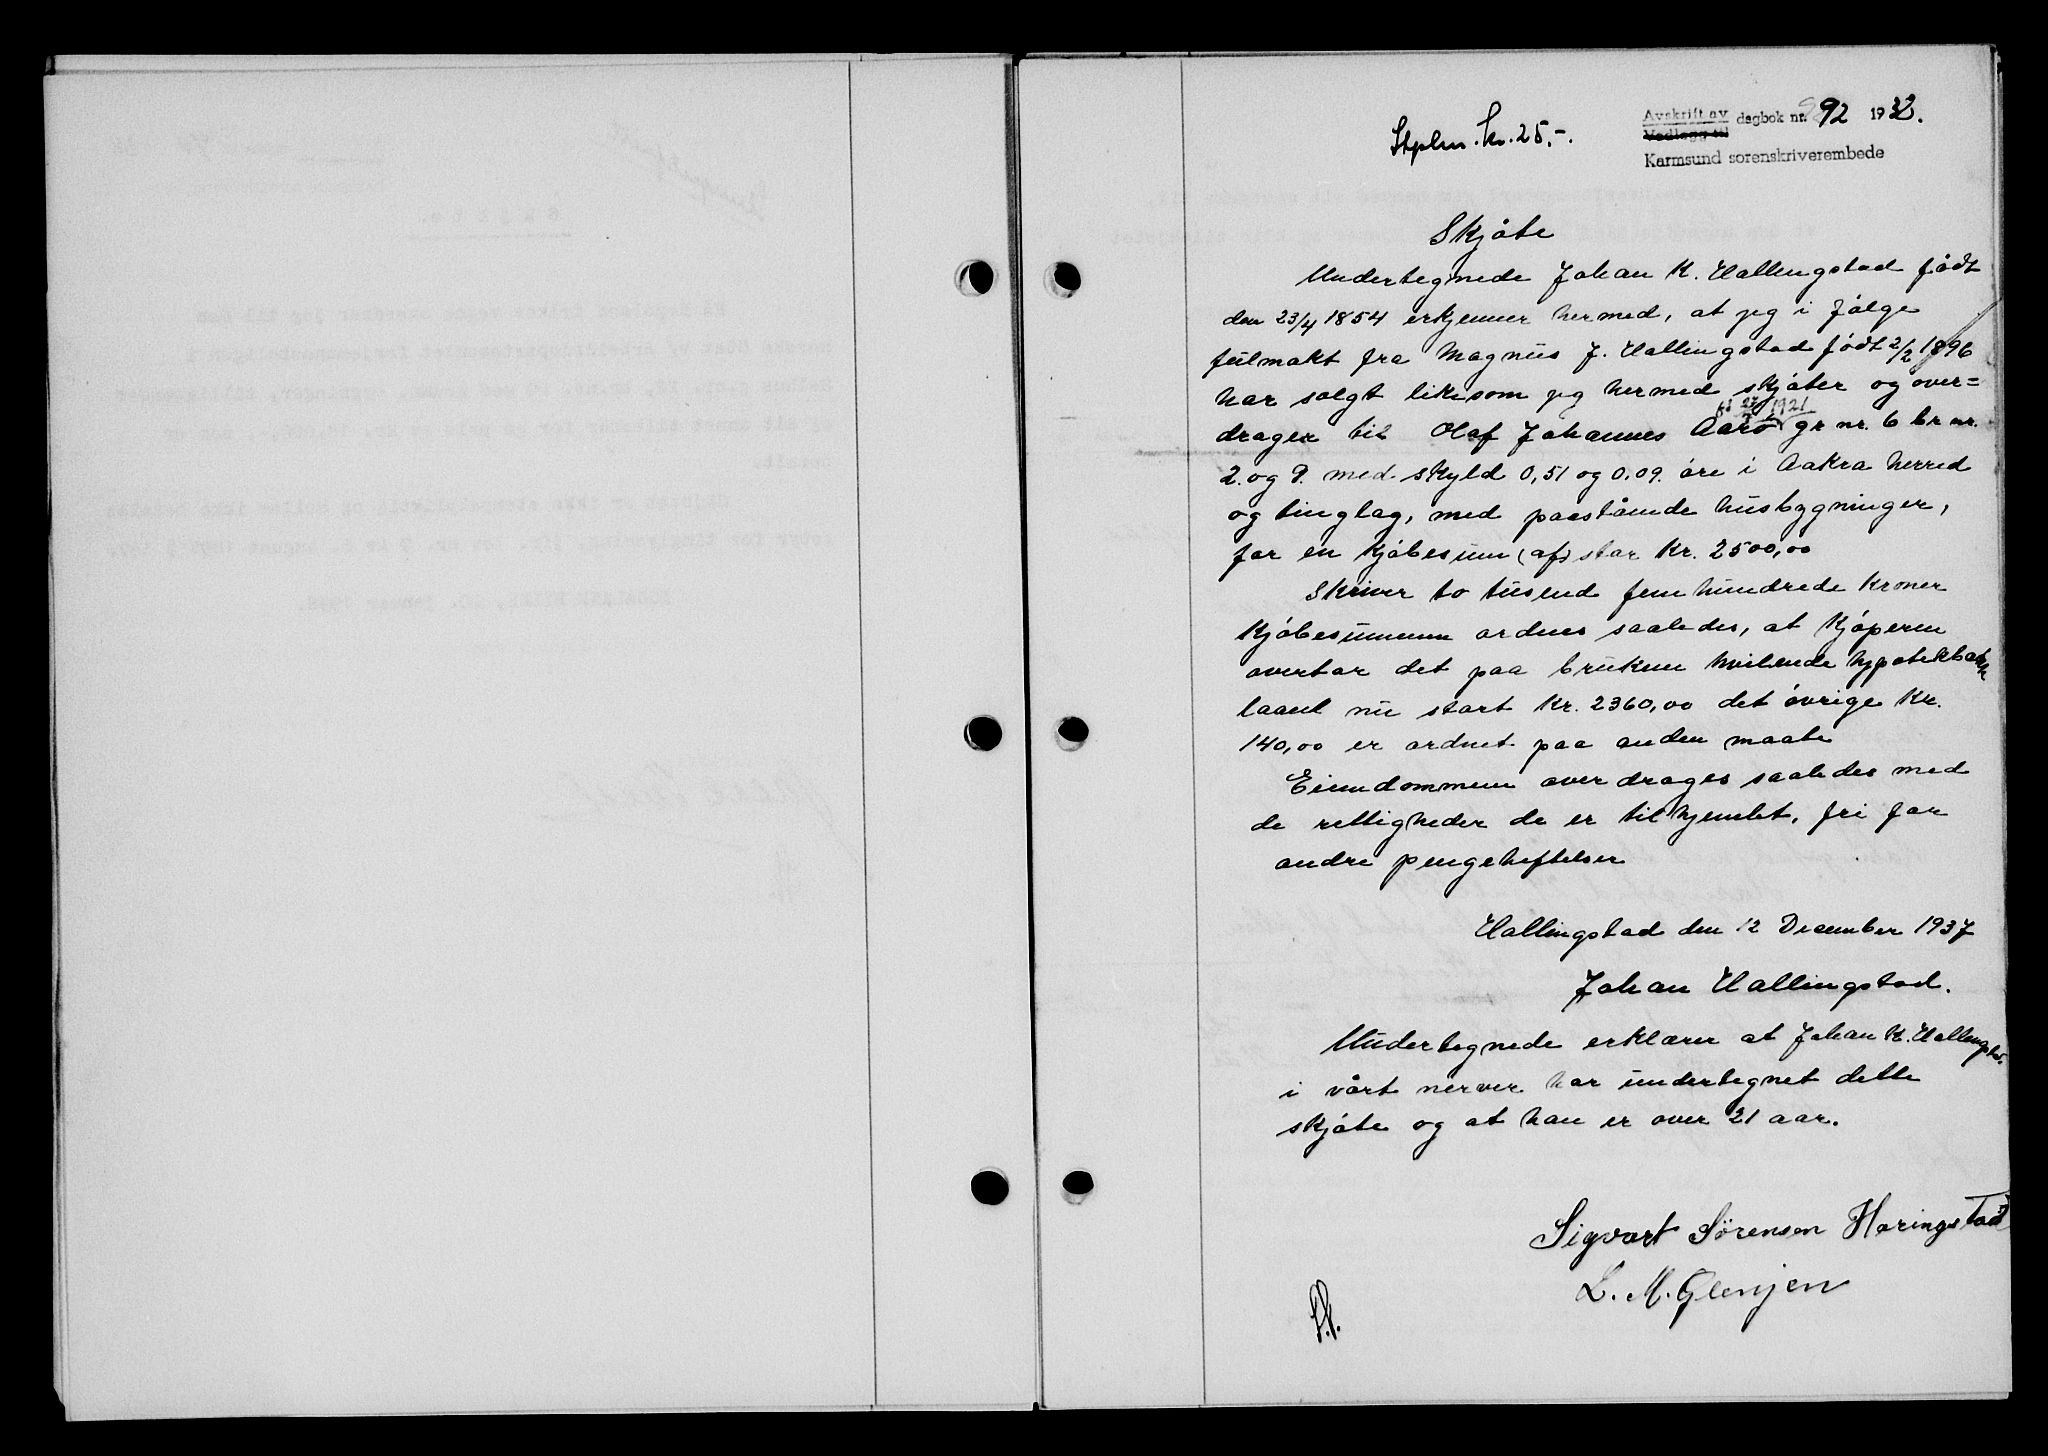 Stplm. kr. 25,-.
Avskrift av dagbok nr. 92 1938.
Vedlegg til
Karmsund sorenskriverembede
Skjöte
Undertegnede Johan K. Hallingstad födt
den 23/4 1854 erkjenner hermed, at jeg i fölge
fulmakt fra Magnus J. Hallingstad födt 2/2 1896
har solgt likesom jeg hermed skjöter og over=
drager til Olaf Johannes Aarö gr nr. 6 br nr.
1921
2. og 9. med skyld 0,51 og 0,09. öre i Aakra herred
og tinglag, med paastående husbygninger,
for en kjöbesum (af) stor Kr. 2500,00
Skriver to tusend fem hundrede Kroner
Kjöbesummen ordnes saaledes, at Kjöperen
overtar det paa bruken hvilende hypotekbank
laant nu stort Kr. 2360,00 det övrige Kr.
140,00 er ordnet paa anden maate
Eiendommen over drages saaledes med
de rettigheder de er tilhjemlet, fri for
andre pengeheftelser
Hallingstad den 12 December 1937
Johan Hallingstad.
Undertegnede erklærer at Johan K. Hallingstad.
i vårt nerver har undertegnet dette
skjöte og at han er over 21 aar.
Sigvart Sörensen Haringstad
L. M. Glenjen